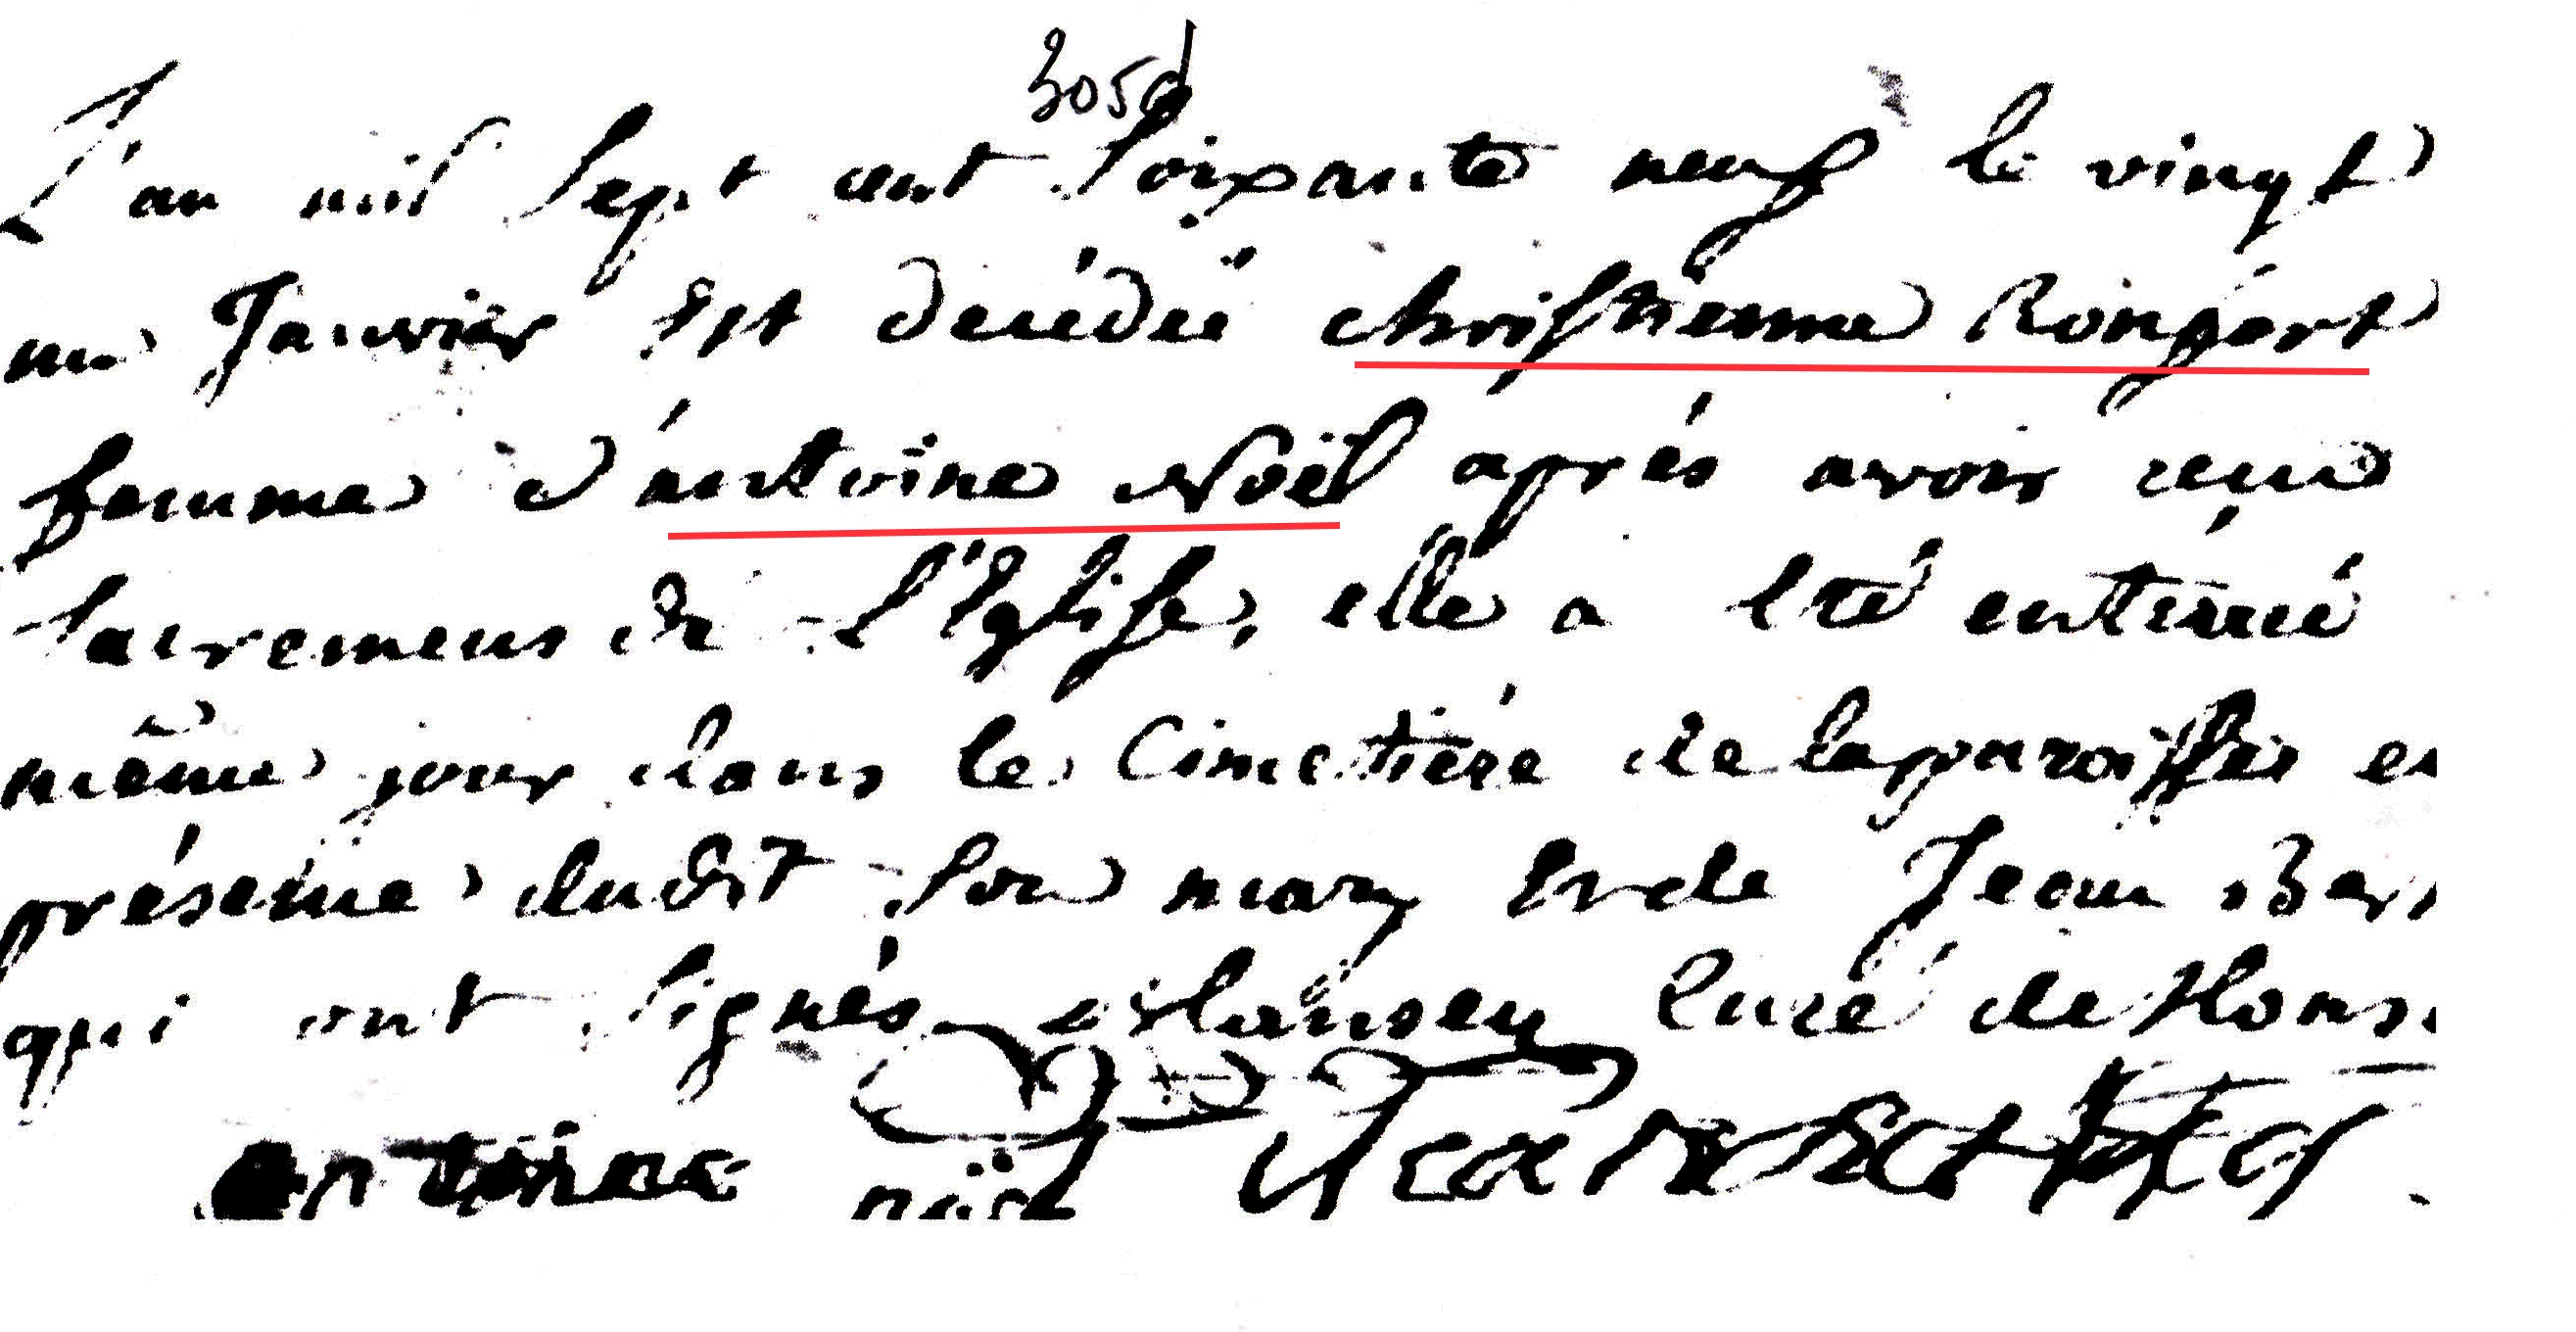 305d
L'an mil sept cent soixante neuf le vingt
un Janvier est décédée christienne Rongert
femme d'antoine Noël après avoir recu
sacremens de l'Eglise, elle a Eté enterrée
même jour dans le Cimetière de la paroisse en
présence dudit son mary Et de Jean
qui ont signés Curé de
antoine noel